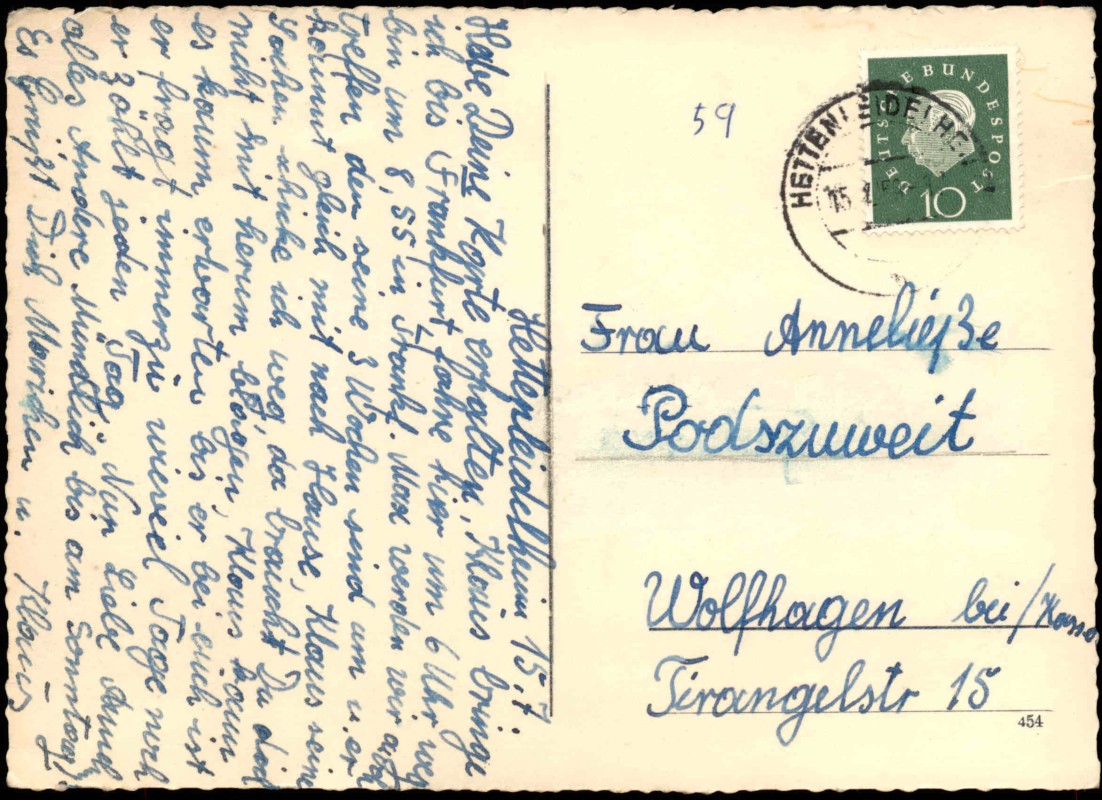 Hettenleidelheim 15.7
Habe Deine Karte erhalten, Klaus bringe
ich bis Frankfurt fahre hier um 6 Uhr weg
bin um 8,55 in Frankf. Max werden wir auch
treffen den seine 3 Wochen sind um u. er
kommt gleich mit nach Hause, Klaus seine
Sachen schicke ich weg, da brauchst Du dich
nicht mit herum plagen, Klaus kann
es kaum erwarten bis er bei euch ist
er fragt immerzu wieviel Tage noch
er zählt jeden Tag. Nun Liebe Anne
alles Andere Mündlich bis am Sonntag!
Es Grüßt Dich Mariechen u. Klaus
59
HETTENLEIDELHEIM
15.
DEUTSCHE BUNDESPOST
10
Frau Anneließe
Podszuweit
Wolfhagen bei/Kassel
Tirangelstr 15
454